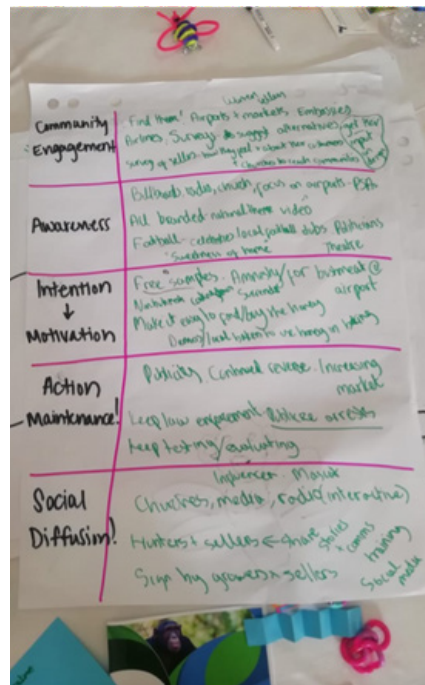 Community
Engagement
Find them! Airports + markets. Embassies
Airlines. Surveys to suggest alternatives, get their input
survey of sellers how they feel + about their customers
+ churches to reach communities
Awareness
Billboards, radio, church, focus on airports. PSAs
All branded natural theme video
Football celebrities/local football clubs Politicians
"Sweetness of home" Theatre
Intention
↓
Motivation
Free samples. Amnesty/for bushmeat @
airport
Make it easy to find/buy the honey
Demos/ to use honey in
Action
Maintenance!
Publicity Continued Increasing
market
Keep law enforcement. arrests
Keep testing/evaluating
Social
Diffusion!
Influencer
Churches, media, radio (interactive)
Hunters + sellers ← share stories
+ comms
training
Sign by growers + sellers
Social
media